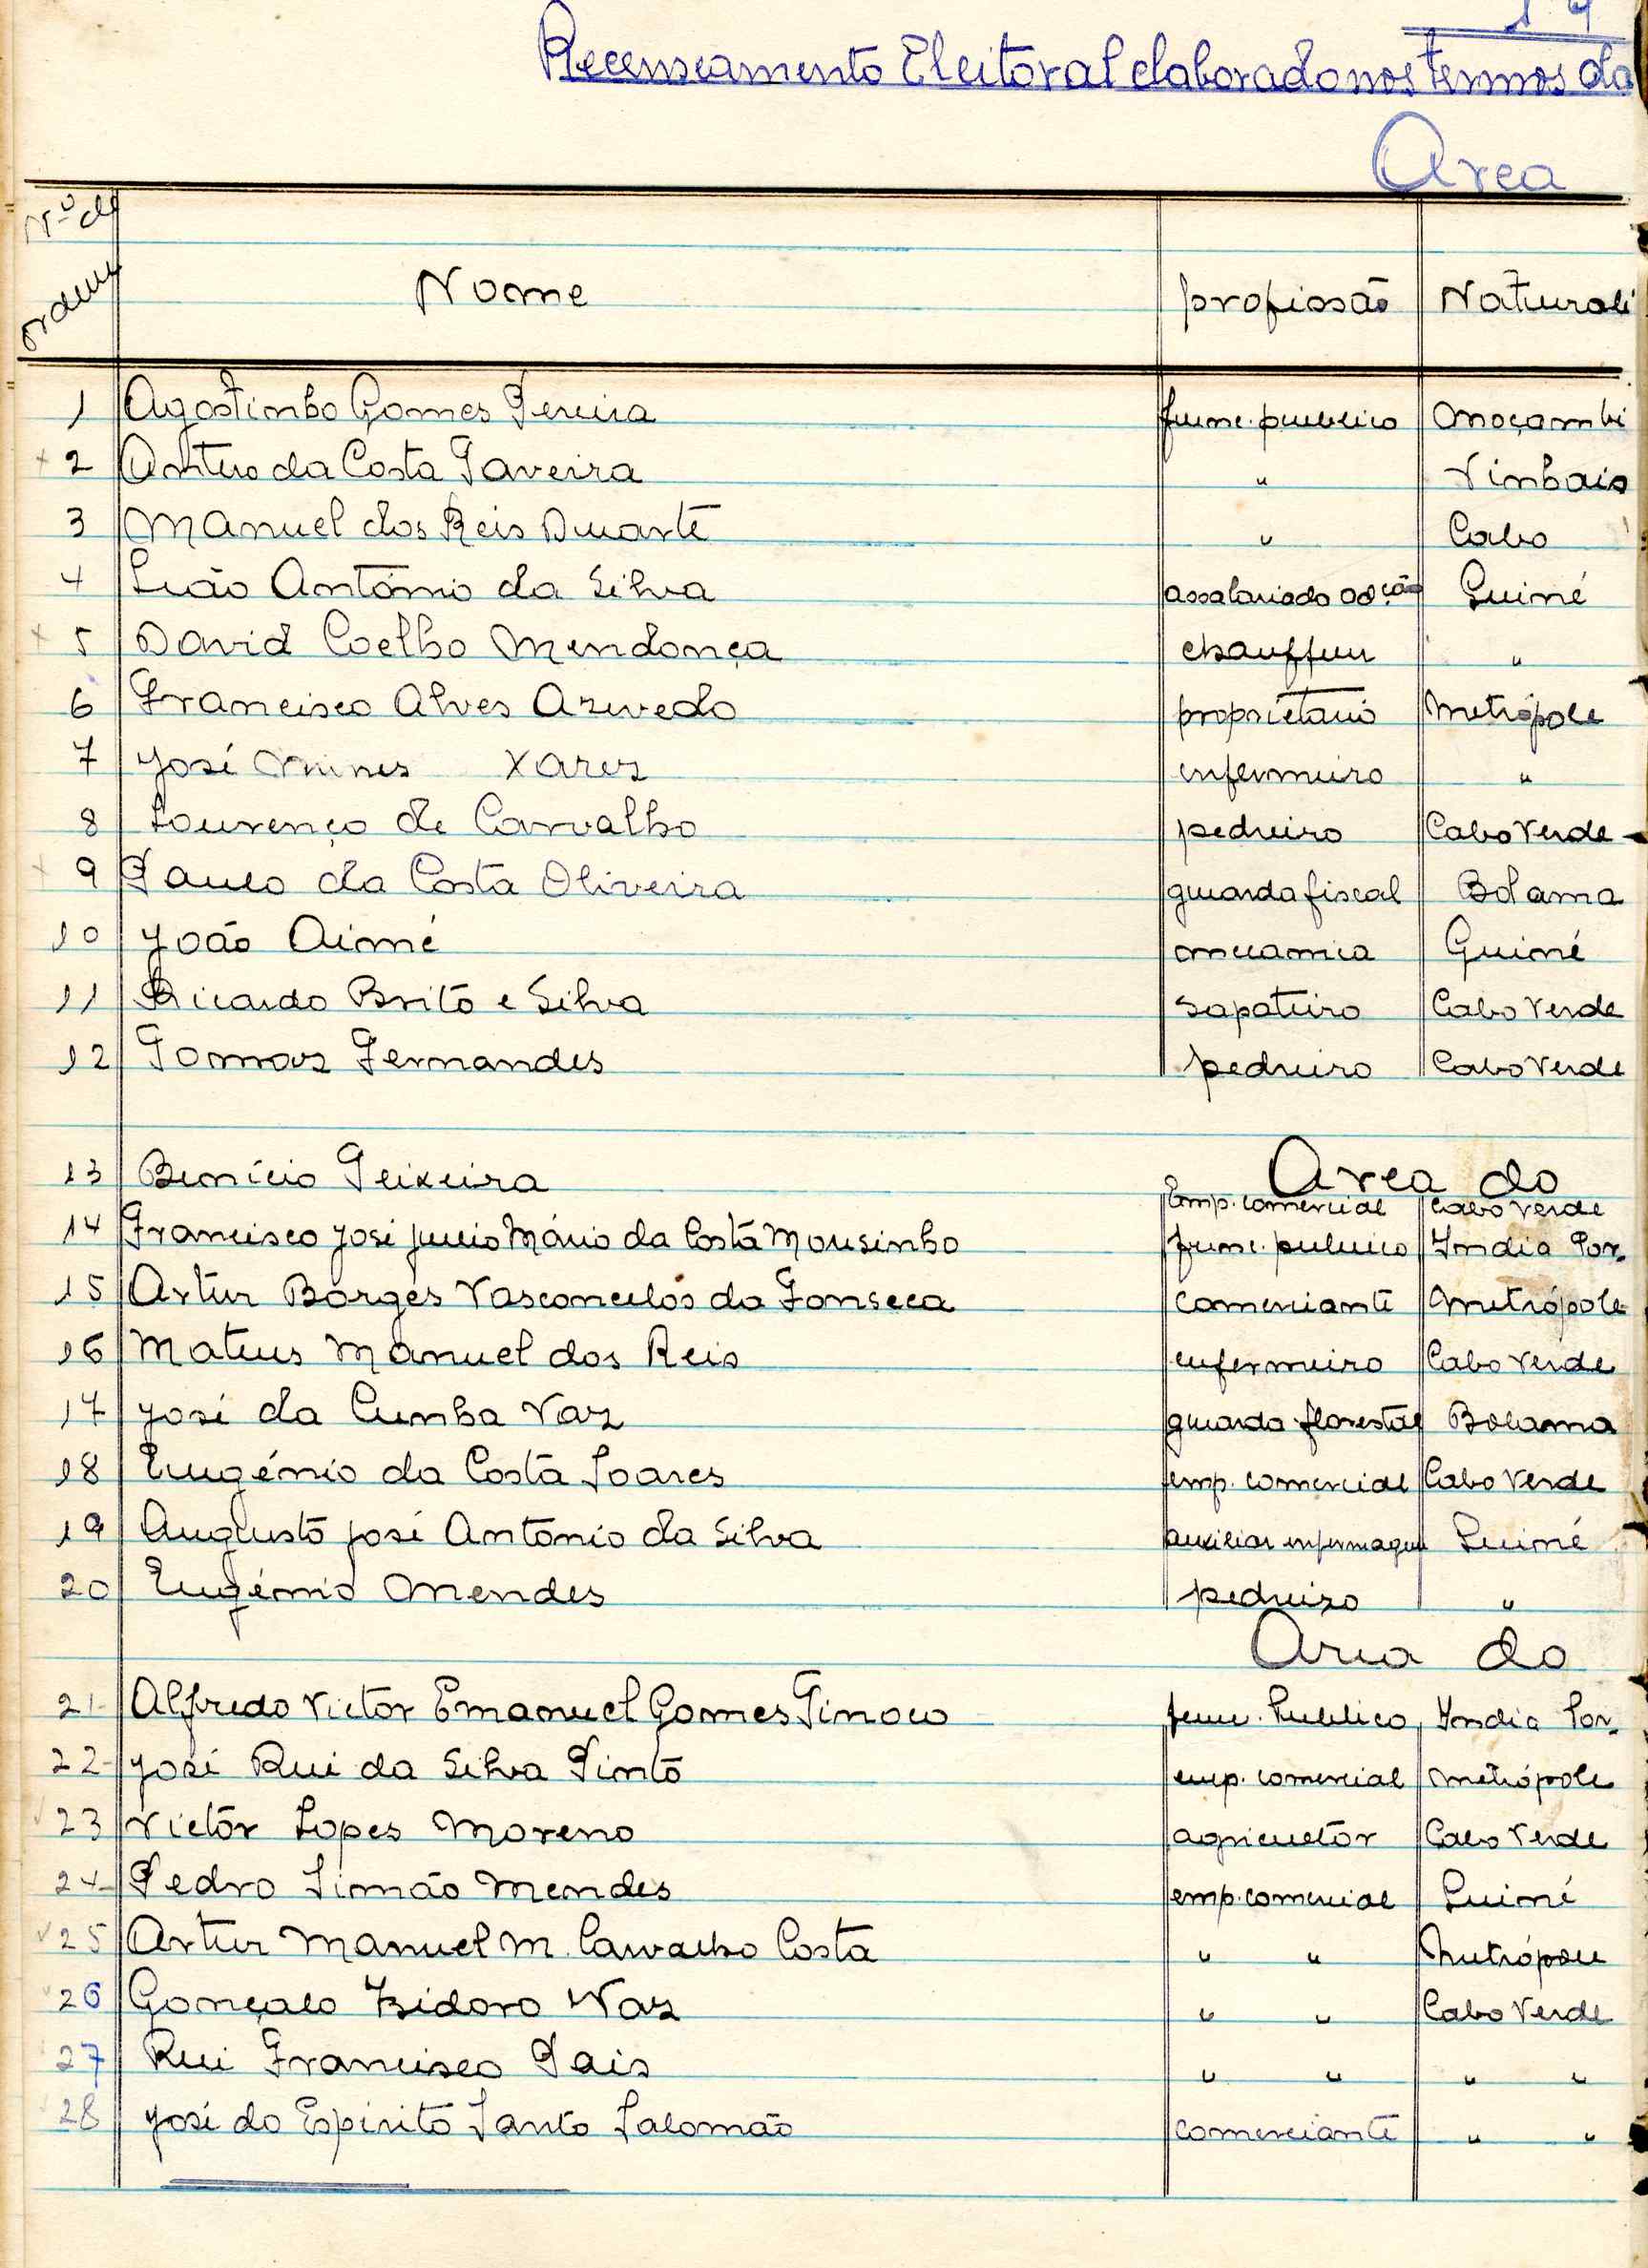 19
Recenseamento Eleitoral elaborado nos termos da
Area
Nº de ordem Nome profissão Naturali
1 Agostinho Gomes Pereira func. publico Moçambi
2 Antero da Costa Taveira " Vinhais
3 Manuel dos Reis Duarte " Cabo
4 Lião António da Silva assalariado adção Guiné
5 David Coelho Mendonça chauffeur "
6 Francisco Alves Azevedo proprietario Metrópole
7 José Nunes Xarez enfermeiro "
8 Lourenço de Carvalho pedreiro Cabo Verde
9 Paulo da Costa Oliveira guarda fiscal Bolama
10 João Aimé mecanica Guiné
11 Ricardo Brito e Silva sapateiro Cabo Verde
12 Tomaz Fernandes pedreiro Cabo Verde
Area do
13 Benicio Teixeira Emp. comercial Cabo Verde
14 Francisco José Julio Mário da Costa Mousinho func. publico India Por.
15 Artur Borges Vasconcelos da Fonseca comerciante Metrópole
16 Mateus Manuel dos Reis enfermeiro Cabo Verde
17 José da Cunha Vaz guarda florestal Bolama
18 Eugénio da Costa Soares emp. comercial Cabo Verde
19 Augusto José Antonio da Silva auxiliar enfermagem Guiné
20 Eugénio Mendes pedreiro "
Area do
21 Alfredo Victor Emanuel Gomes Tinoco func. Publico India Por.
22 José Rui da Silva Pinto emp. comercial Metrópole
23 Victor Lopes Moreno agricultor Cabo Verde
24 Pedro Simão Mendes emp. comercial Guiné
25 Artur Manuel M. Carvalho Costa " " Metrópole
26 Gonçalo Izidoro Vaz " " Cabo Verde
27 Rui Francisco Pais " " " "
28 José do Espirito Santo Salomão comerciante " "